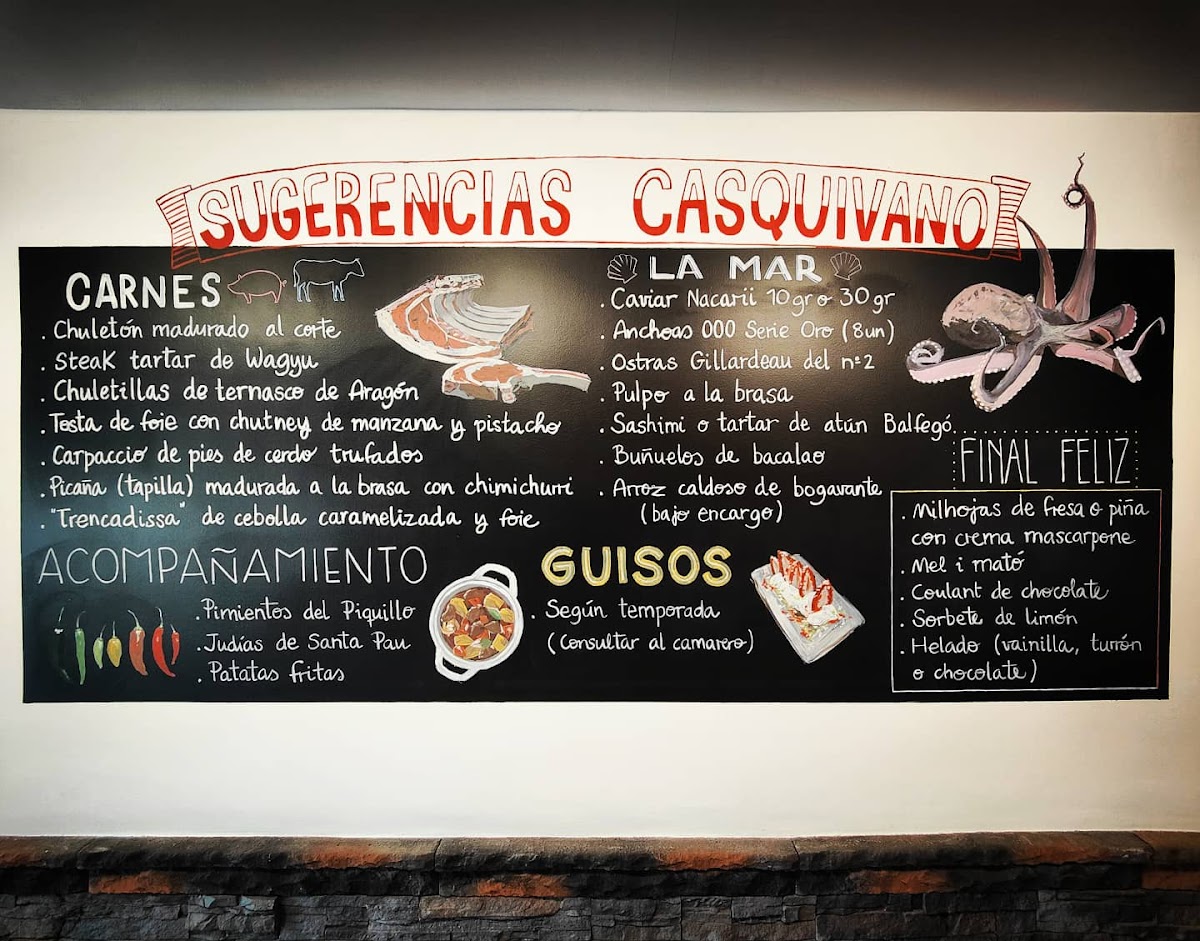 SUGERENCIAS CASQUIVANO
CARNES
. Chuletón madurado al corte
. Steak tartar de Wagyu
. Chuletillas de ternasco de Aragón
. Testa de foie con chutney de manzana y pistacho
. Carpaccio de pies de cerdo trufados
. Picaña (tapilla) madurada a la brasa con chimichurri
. "Trencadissa" de cebolla caramelizada y foie
LA MAR
. Caviar Nacarii 10gr o 30gr
. Anchoas 000 Serie Oro (8un)
. Ostras Gillardeau del nº2
. Pulpo a la brasa
. Sashimi o tartar de atún Balfegó
. Buñuelos de bacalao
. Arroz caldoso de bogavante
(bajo encargo)
ACOMPAÑAMIENTO
. Pimientos del Piquillo
. Judías de Santa Pau
. Patatas fritas
GUISOS
. Según temporada
(consultar al camarero)
FINAL FELIZ
. Milhojas de fresa o piña
con crema mascarpone
. Mel i mató
. Coulant de chocolate
. Sorbete de limón
. Helado (vainilla, turrón
o chocolate)